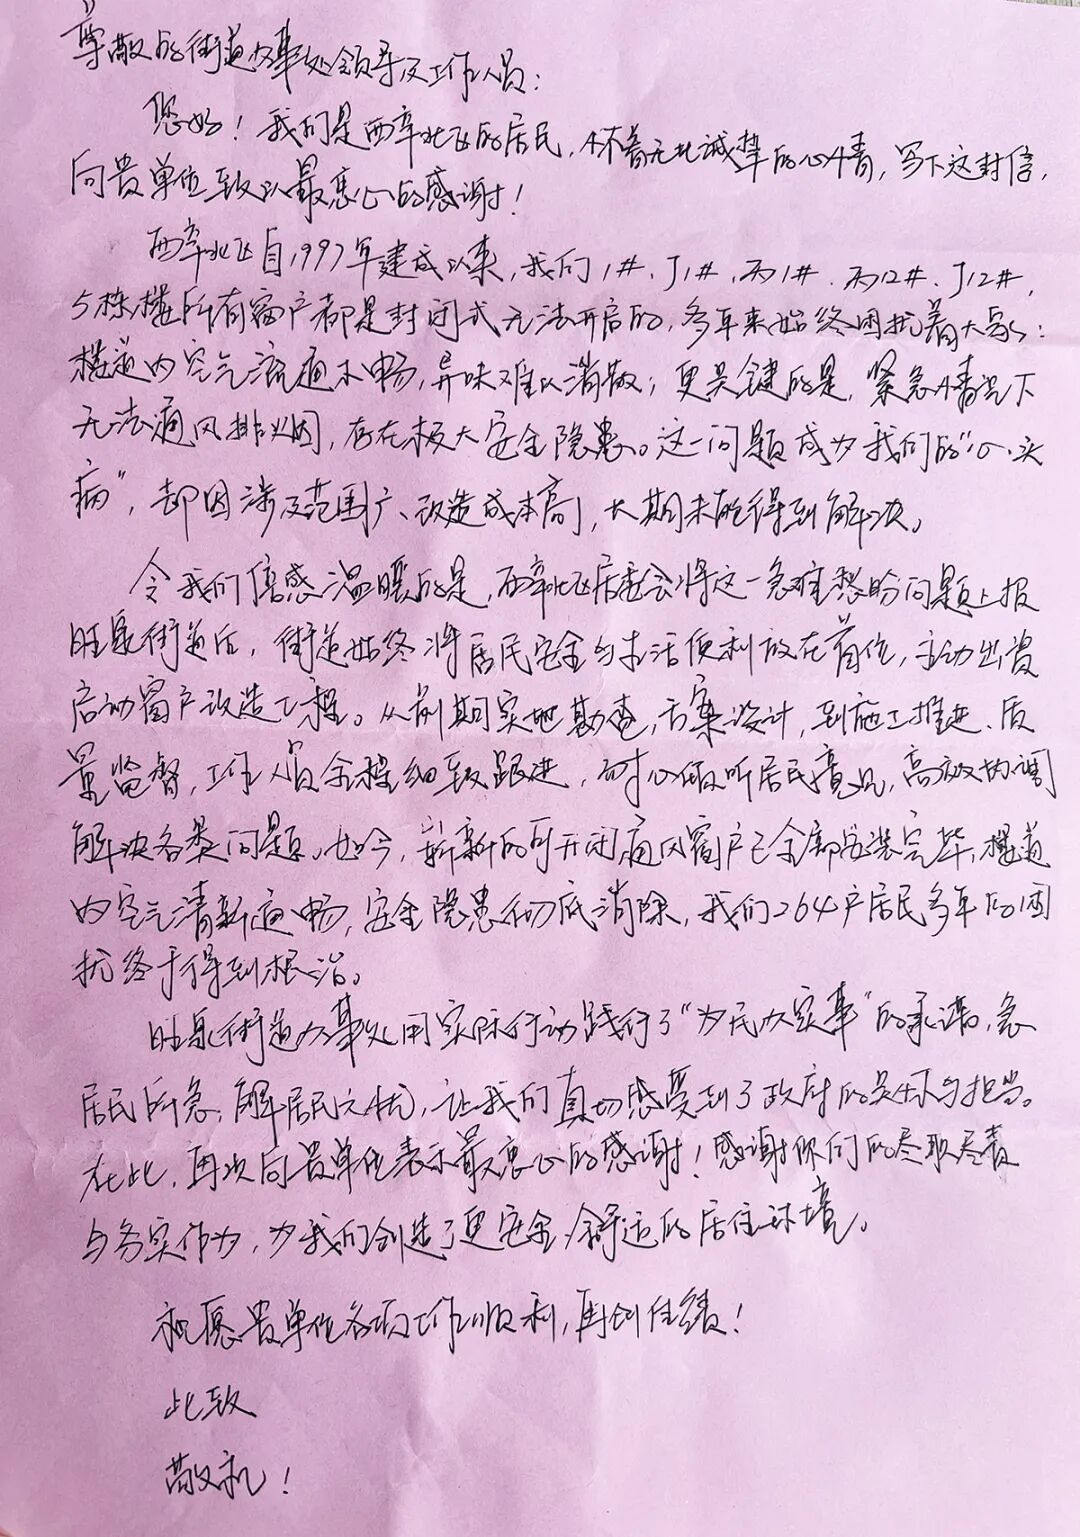 尊敬的街道办事处领导及工作人员：
您好！我们是西辛北区的居民，怀着无比诚挚的心情，写下这封信，
向贵单位致以最衷心的感谢！
西辛北区自1997年建成以来，我们1#、丁1#、丙1#、丙12#、丁12#，
5栋楼所有窗户都是封闭式无法开启的，多年来始终困扰着大家：
楼道内空气流通不畅，异味难以消散；更关键的是，紧急情况下
无法通风排烟，存在极大安全隐患。这一问题成为我们的“心头
病”，却因涉及范围广、改造成本高，长期未能得到解决。
令我们倍感温暖的是，西辛北区居委会将这一急难愁盼问题上报
旺泉街道后，街道始终将居民安全与生活便利放在首位，主动出资
启动窗户改造工程。从前期实地勘查，方案设计，到施工推进、质
量监督，工作人员全程细致跟进，耐心倾听居民意见，高效协调
解决各类问题。如今，崭新的可开闭通风窗户已全部安装完毕，楼道
内空气清新通畅，安全隐患彻底消除，我们264户居民多年的困
扰终于得到根治。
旺泉街道办事处用实际行动践行了“为民办实事”的承诺，急
居民所急，解居民之忧，让我们真切感受到了政府的关怀与担当。
在此，再次向贵单位表示最衷心的感谢！感谢你们的尽职尽责
与务实作为，为我们创造了更安全、舒适的居住环境。
祝愿贵单位各项工作顺利，再创佳绩！
此致
敬礼！